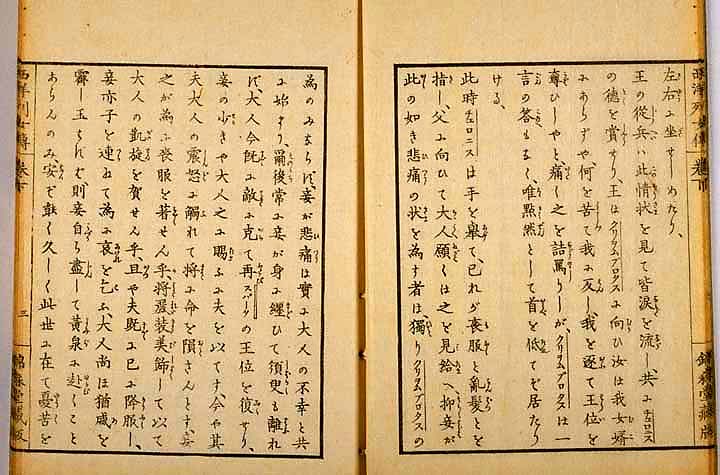 左右に坐せしめたり、
王の從兵ハ此情状を見て皆涙を流し、共にチエロニス
の徳を賞せり王はクリヲムブロタスに向ひ汝は我女婿
にあらずや、何を苦て我に反し我を逐て王位を
奪ひしやと、痛く之を詰罵りしが、クリヲムブロタスは一
言の答もなく、唯黙然として首を低てぞ居たり
ける、
此時チエロニスは手を擧て、己れが喪服と亂髪とを
指し、父に向ひて大人願くは之を見給へ、抑妾が
此の如き悲痛の状を為す者は、獨りクリヲムブロタスの
為のみならず、妾が悲痛は實に大人の不幸と共
に始まり、爾後常に妾が身に纏ひて須臾も離れ
ず、大人今既に敵に克て再スパータの王位を復せり、
妾の少きや大人之に賜ふに夫を以てす、今や其
夫大人の震怒に觸れて将に命を隕さんとす、妾
之が為に喪服を着せん乎、将盛装美飾して以て
大人の凱旋を賀せん乎、且や夫既に已に降服し、
妾亦子を連ねて為に哀を乞ふ、大人尚ほ猶威を
霽し玉はずば則妾自ら盡して黄泉に赴くこと
あらんのみ、安ぞ能く久しく此世に在て憂苦を
西洋列女傳 巻下 三